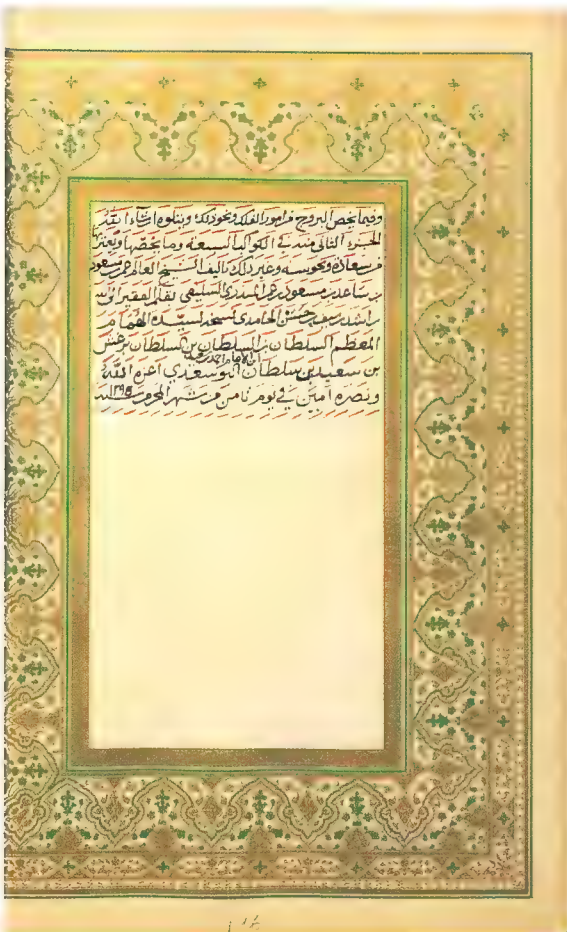 وفيما يخص البروج من امور الفلك ونحو ذلك ويتلوه ان شاء الله
الجزء الثاني منه في الكواكب السبعة وما يخصها ويعتريها
من سعادة ونحوسة وغير ذلك تاليف الشيخ العالم عمر بن مسعود
بن ساعد بن مسعود المنذري السليفي نقله الفقير لله
راشد بن سيف بن الحامدي نسخه لسيده الهمام
المعظم السلطان بن السلطان بن السلطان برغش
بن سعيد بن سلطان بن الامام احمد بن سعيد البوسعيدي اعزه الله
ونصره امين في يوم ثامن من شهر المحرم سنة